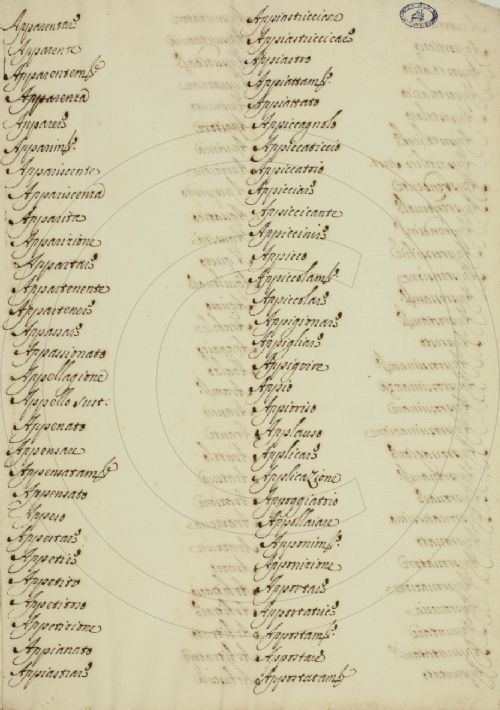 Apparentare
Apparente
Apparentem.te
Apparenza
Apparere
Apparim.to
Appariscente
Appariscenza
Apparita
Apparizione
Appartare
Appartenente
Appartenere
Appassare
Appassionato
Appellagione
Appello sust:
Appenato
Appensare
Appensatam.te
Appensato
Appeso
Appestare
Appetire
Appetito
Appetitoso
Appetizione
Appianato
Appiastrare
Appiastricciare
Appiastriccicare
Appiastro
Appiattam.to
Appiattato
Appiccagnolo
Appiccaticcio
Appiccatoio
Appicciare
Appiccicante
Appiccinire
Appicco
Appiccolam.to
Appiccolare
Appigionare
Appigliare
Appiguire
Appio
Appioriso
Applauso
Applicare
Applicazione
Appoggiatoio
Appollaiare
Apponim.to
Apponizione
Apportare
Apportatore
Appostam.to
Appostare
Appostatam.te